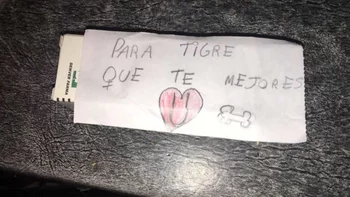 PARA TIGRE
QUE TE MEJORES